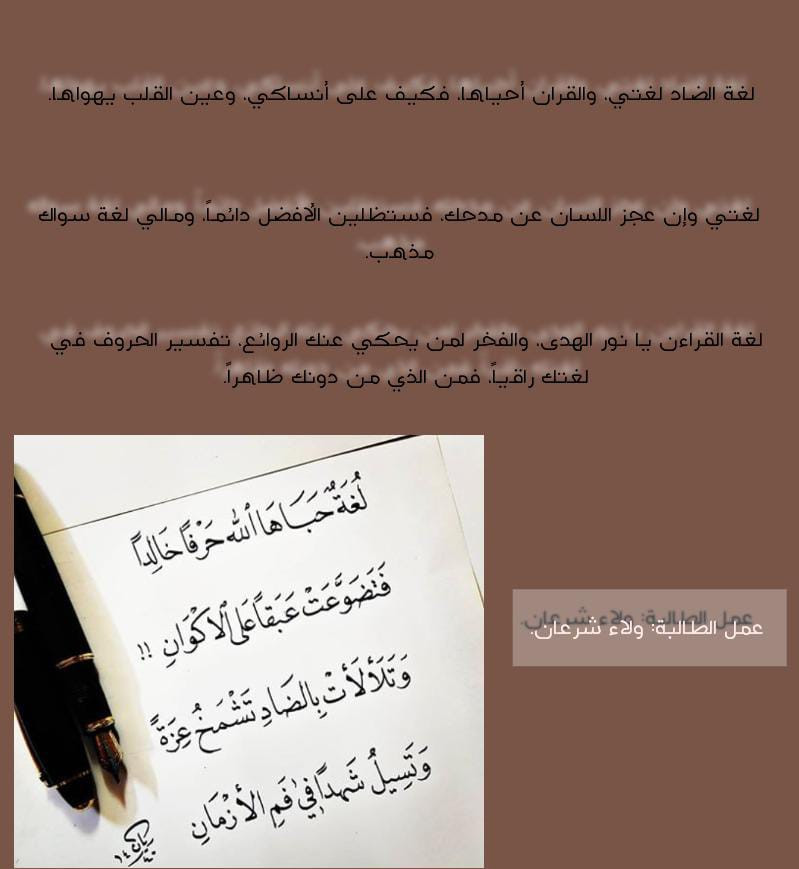 لغة الضاد لغتي، والقران أحياها، فكيف على أنساكي، وعين القلب يهواها.
لغتي وإن عجز اللسان عن مدحك، فستظلين الأفضل دائماً، ومالي لغة سواك
مذهب.
لغة القراءن يا نور الهدى، والفخر لمن يحكي عنك الروائع، تفسير الحروف في
لغتك راقياً، فمن الذي من دونك ظاهراً.
لُغَةٌ حَبَاهَا ٱللّٰه حَرْفًا خَالِدًا
فَتَضَوَّعَتْ عَبَقاً عَلَى ٱلاكْوَانِ !!
وَتَلَألَأتْ بِالضَادِ تَشْمَخُ عِزَةً
وَتَسِيلُ شَهدًا فِي فَمِ الأزْمَانِ
عمل الطالبة: ولاء شرعان.